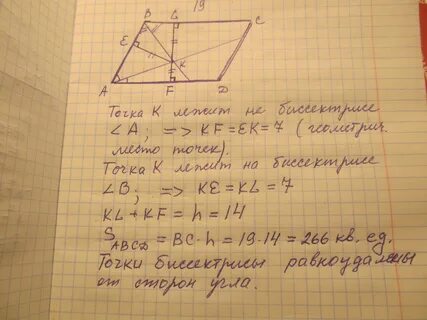 19
B G C
E
K
A F D
Точка K лежит на биссектрисе
∠A; => KF=EK=7 (геометрич.
место точек).
Точка K лежит на биссектрисе
∠B; => KE=KL=7
KL+KF=h=14
S ABCD = BC·h=19·14=266 кв. ед.
Точки биссектрисы равноудалены
от сторон угла.